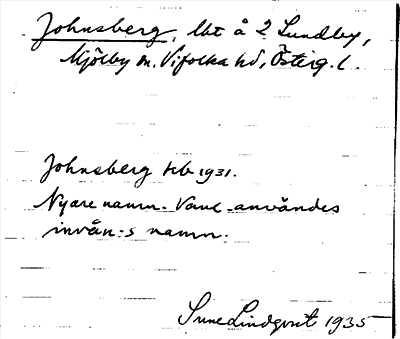 Johnsberg, lht å 2 Lundby,
Mjölby sn, Vifolka hd, Österg. l.
Johnsberg kb 1931.
Nyare namn. Vanl. användes
invån:s namn.
Sune Lindqvist 1935